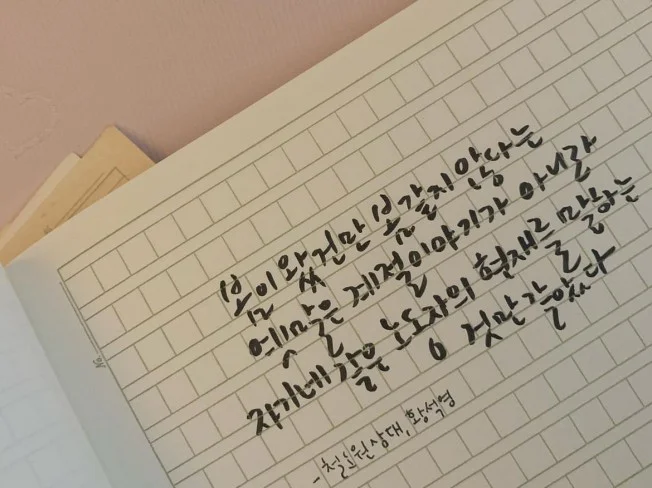 봄이 왔건만 봄같지 않다는
옛말은 계절이야기가 아니라
자기네 같은 노도자의 현재를 말하는
것만 같았다
- 철도원 삼대, 황석영
No.